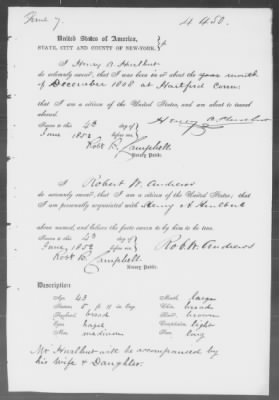 June 7. 4450.
United States of America,
STATE, CITY AND COUNTY OF NEW-YORK.
I Henry A. Hurlbut
do solemnly swear, that I was born in or about the year month
of December 1808 at Hartford Conn:
that I am a citizen of the United States, and am about to travel
abroad.
Sworn to this 4th day of
June 1852 before me
Henry A. Hurlbut
Robt B. Campbell.
Notary Public.
I Robert W. Andrews
do solemnly swear, that I am a citizen of the United States; that
I am personally acquainted with Henry A Hurlbut
above named, and believe the facts sworn to by him to be true.
Sworn to this 4th day of
June, 1852 before me
Rob. W. Andrews
Robt B. Campbell.
Notary Public.
Description
Age, 43
Stature, 5 ft 11 in Eng
Forehead, broad
Eyes, hazel
Nose, medium
Mouth, large
Chin, broad
Hair, brown
Complexion, light
Face, long
Mr Hurlbut will be accompanied by
his Wife & Daughter.